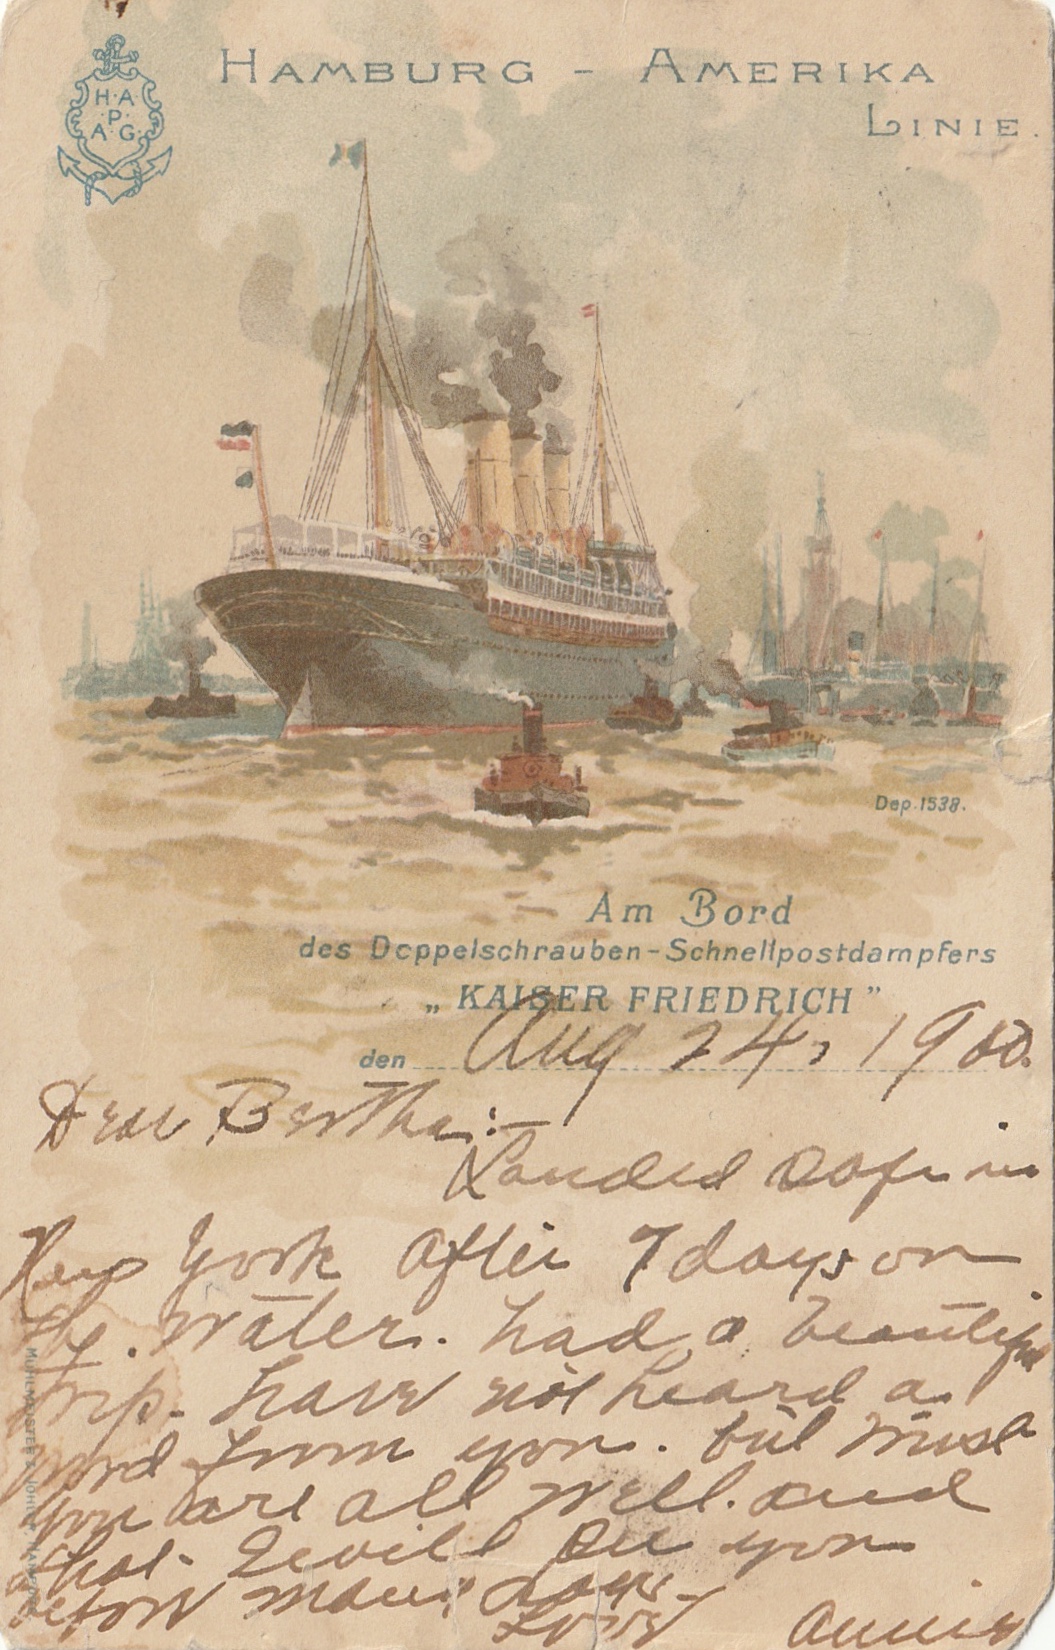 HAMBURG - AMERIKA
LINIE.
H·A·
P·
A·G·
Dep. 1538.
Am Bord
des Doppelschrauben-Schnellpostdampfers
„KAISER FRIEDRICH”
den Aug 24, 1900.
Dear Bertha:-
Landed safe in
New York after 7 days on
the water. had a beautiful
trip. have not heard a
word from you. but trust
you are all well. and
that I will see you
before many days.
Love Annie